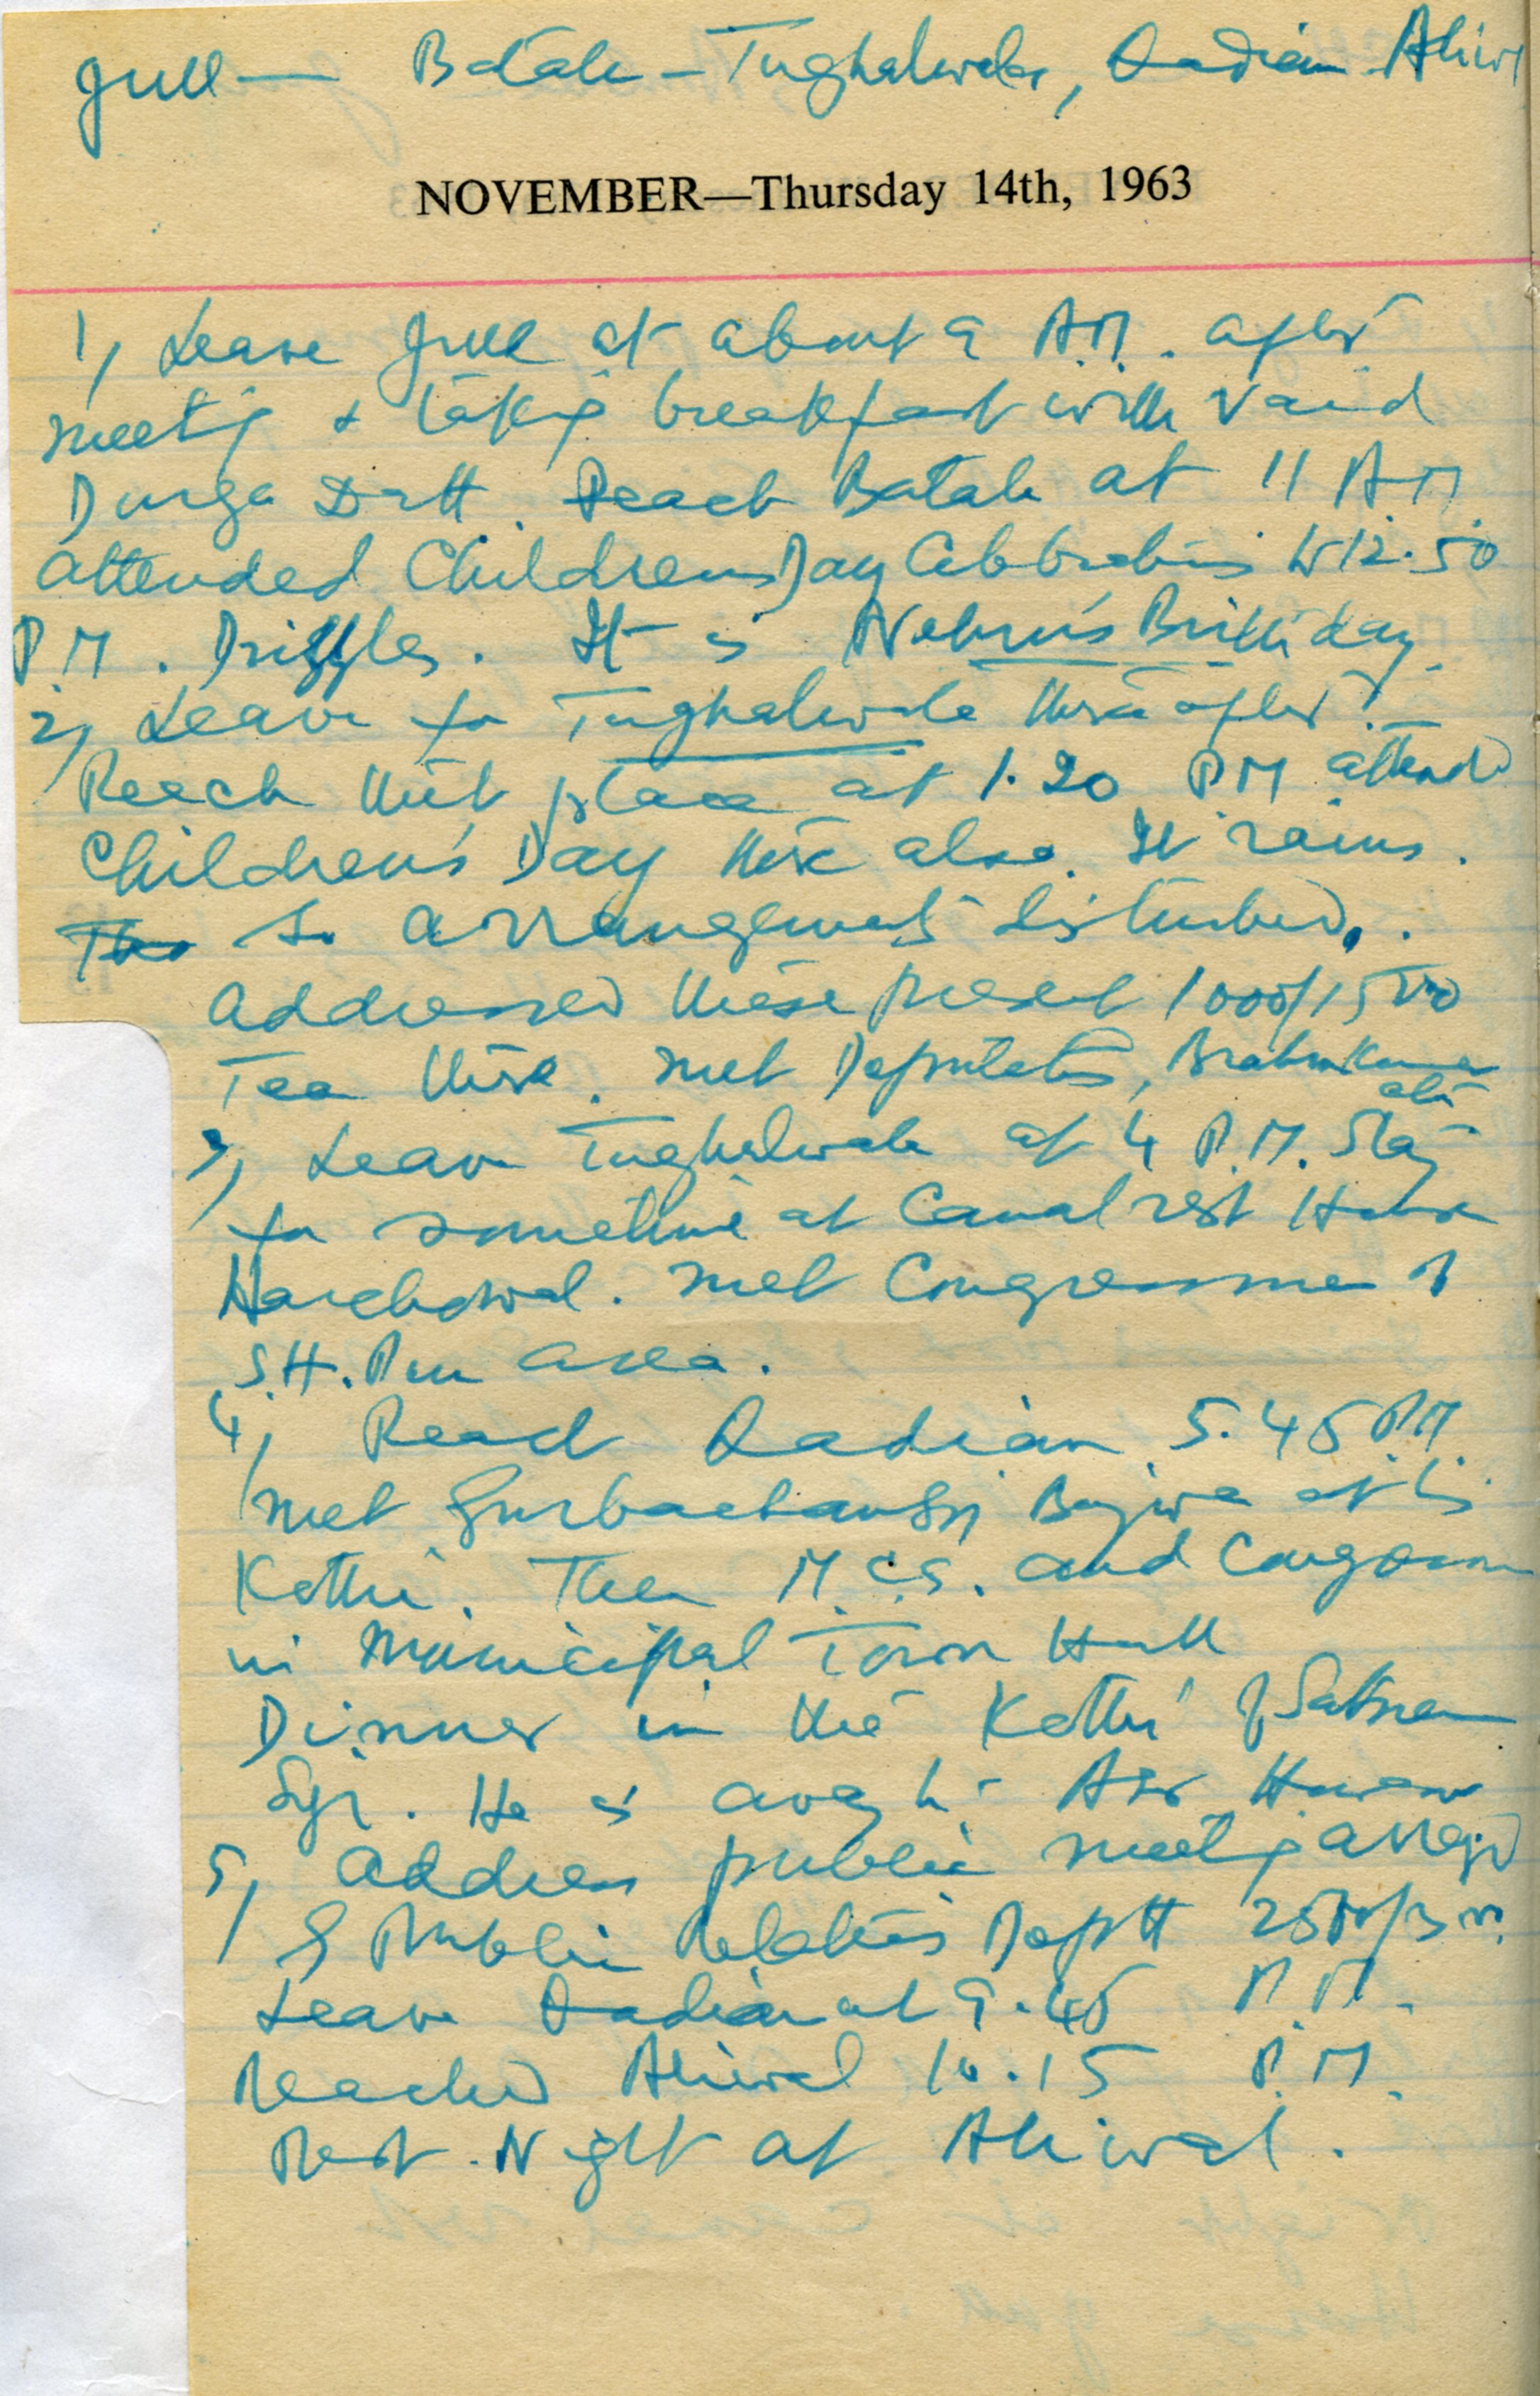 Gull — Batala - Tughalwala, Qadian Aliwal
NOVEMBER—Thursday 14th, 1963
1, Leave Gull at about 9 A.M. after
meeting & taking breakfast with Vaid
Durga Datt. Reach Batala at 11 A.M.
attended Childrens Day Celebrations to 12.50
P.M. Drizzles. It is Nehru's Birthday.
2, Leave for Tughalwala thereafter.
Reach that place at 1.20 PM attended
Children's Day there also. It rains.
So arrangements disturbed.
Addressed these present 1000/1500
Tea there. Met Deputations,
3, Leave Tughalwala at 4 P.M. Stay
for sometime at Canal rest House
Harchowal. Met Congressmen of
S.H. Pur area.
4, Reach Qadian 5.45 PM
Met Gurbachan Singh Bajwa at his
Kothi. Then M.Cs. and Congressmen
in Municipal Town Hall
Dinner in the Kothi of Satnam
Singh. He is away to
5, Address public meeting arranged
by Public Relations Deptt 2500/3000
Leave Qadian at 9.45 P.M.
Reached Aliwal 10.15 P.M.
Rest Night at Aliwal.